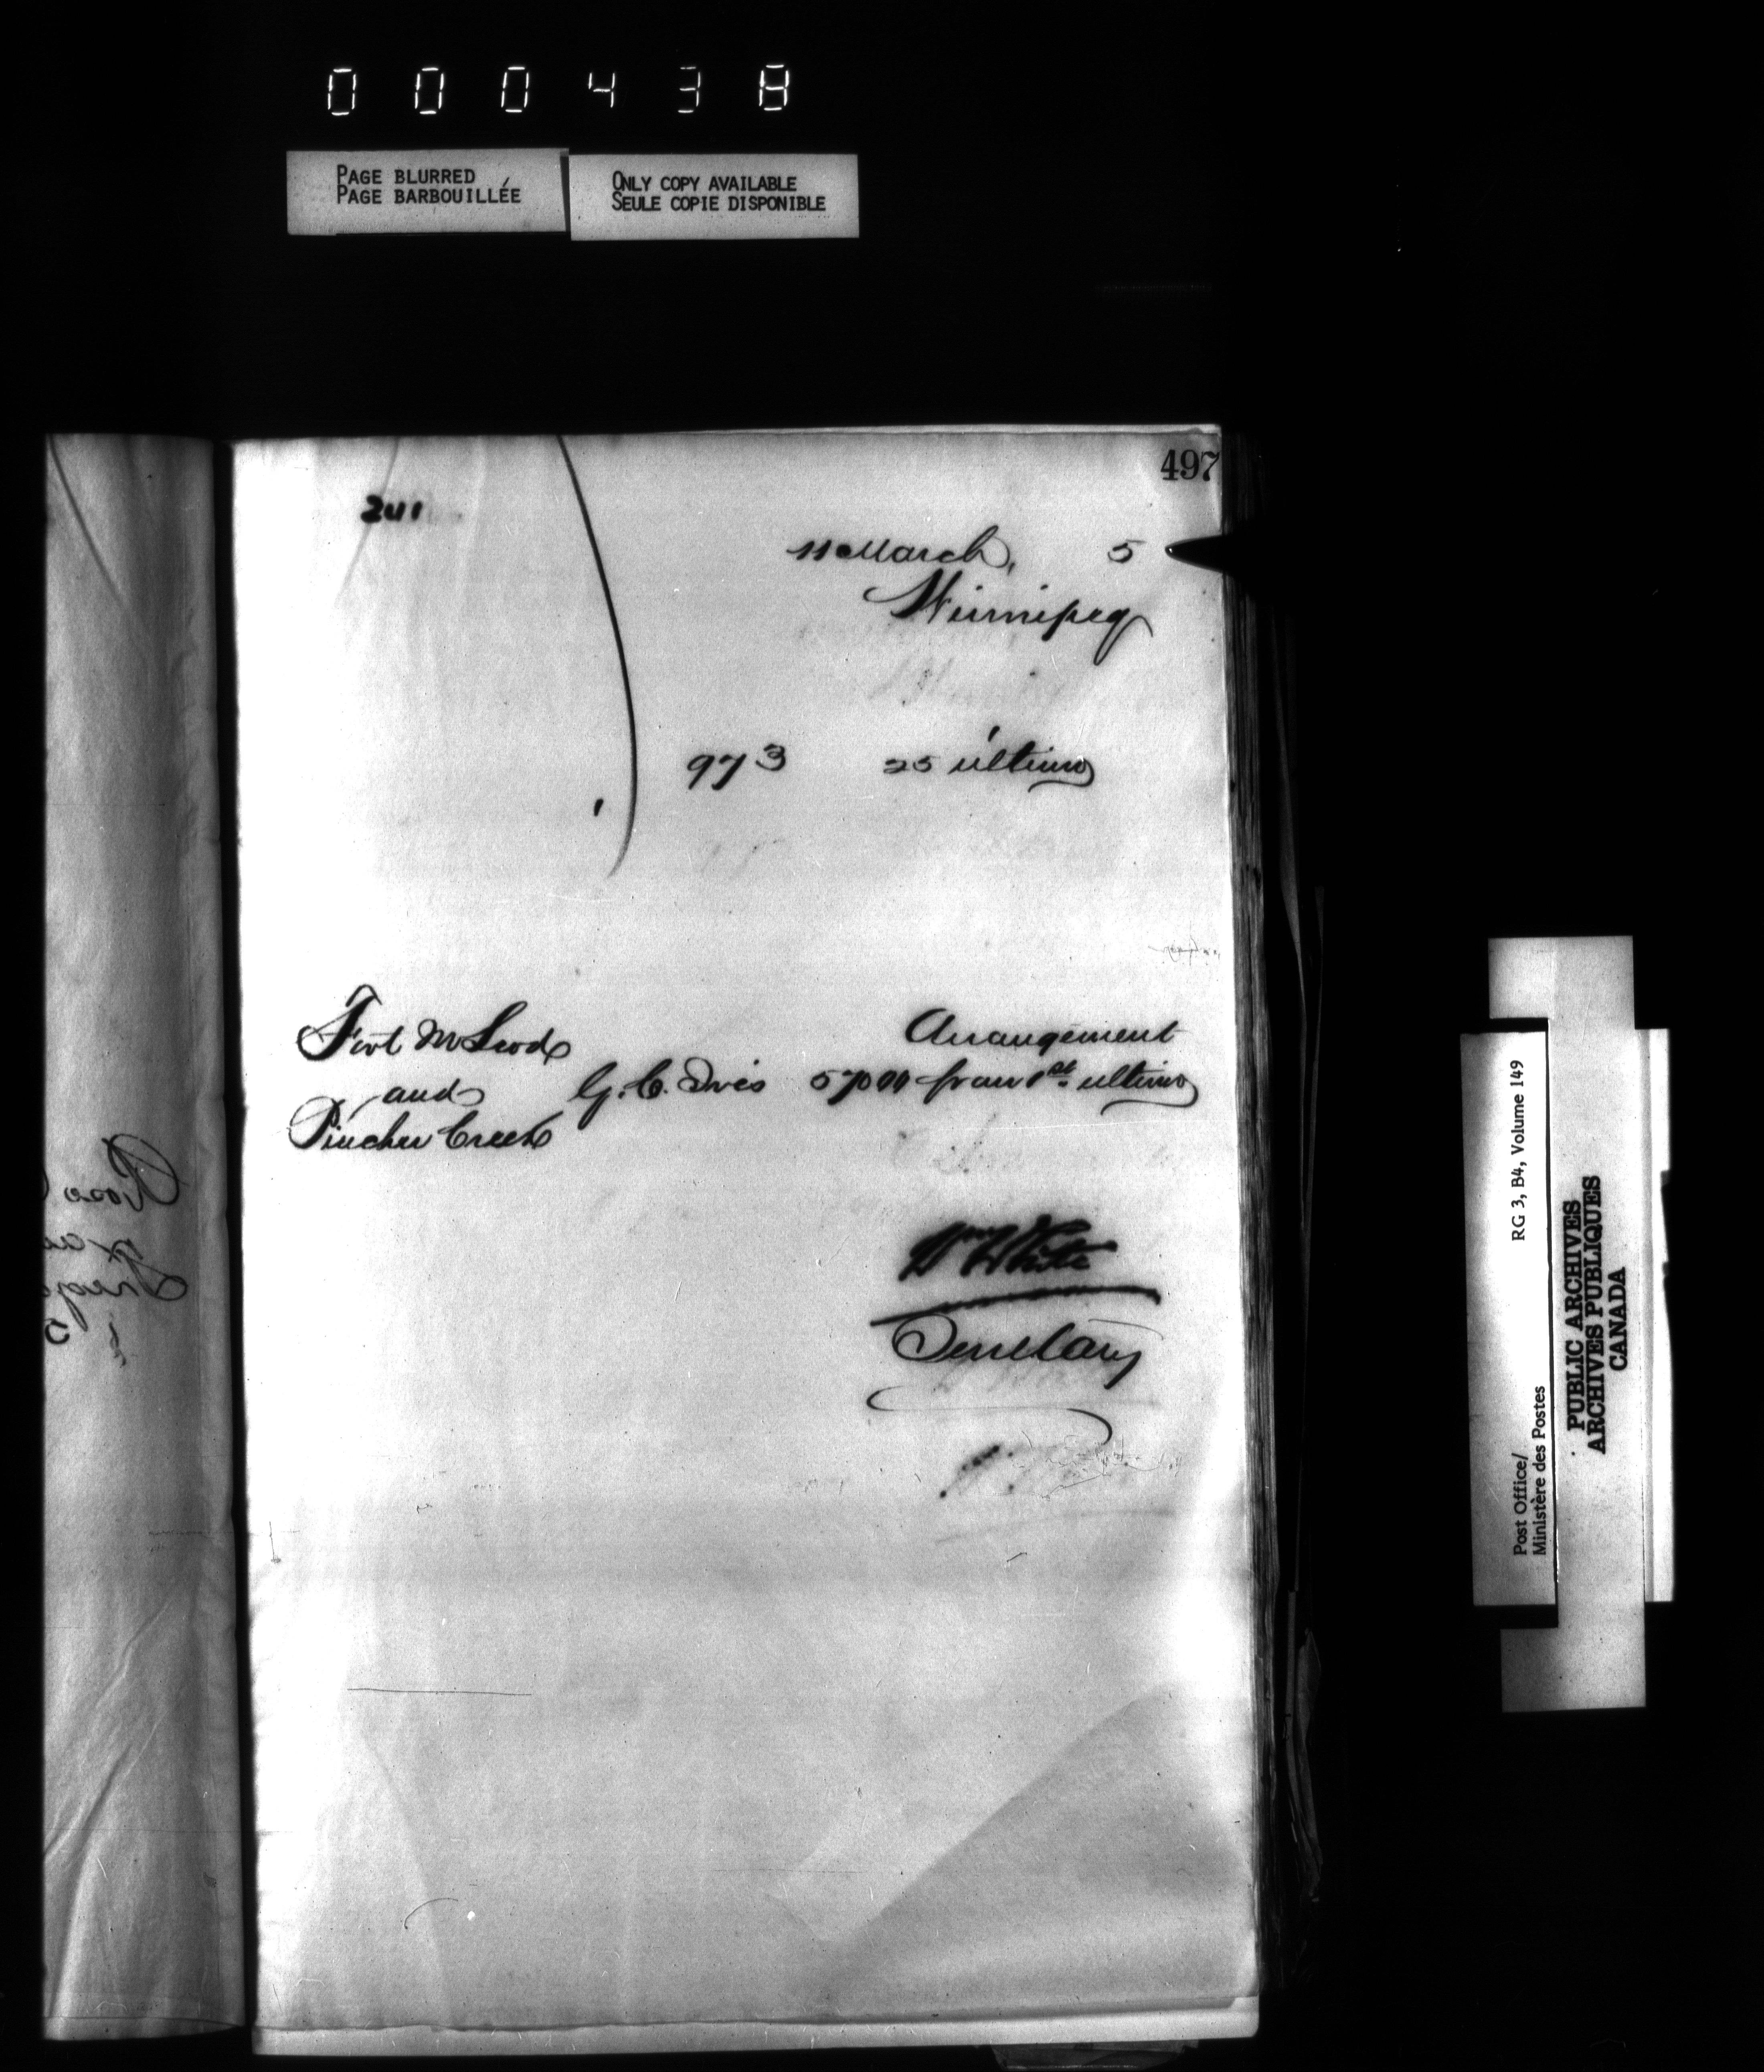 000438
PAGE BLURRED
PAGE BARBOUILLÉE
ONLY COPY AVAILABLE
SEULE COPIE DISPONIBLE
497
241
11 March, 5
Winnipeg
973 25 ultimo
Fort McLeod
and
Pincher Creek
G. C. Ives
Arrangement
570 00 from 1st ultimo
Wm White
Secretary
Post Office/
Ministère des Postes
RG 3, B4, Volume 149
PUBLIC ARCHIVES
ARCHIVES PUBLIQUES
CANADA